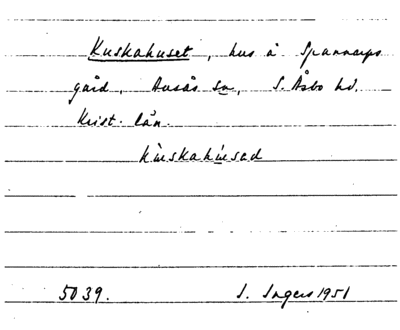 Kuskahuset, hus å Spannarps
gård, Ausås sn, S. Åsbo hd.
Krist. län.
kuskahusad
5039. I. Ingers 1951